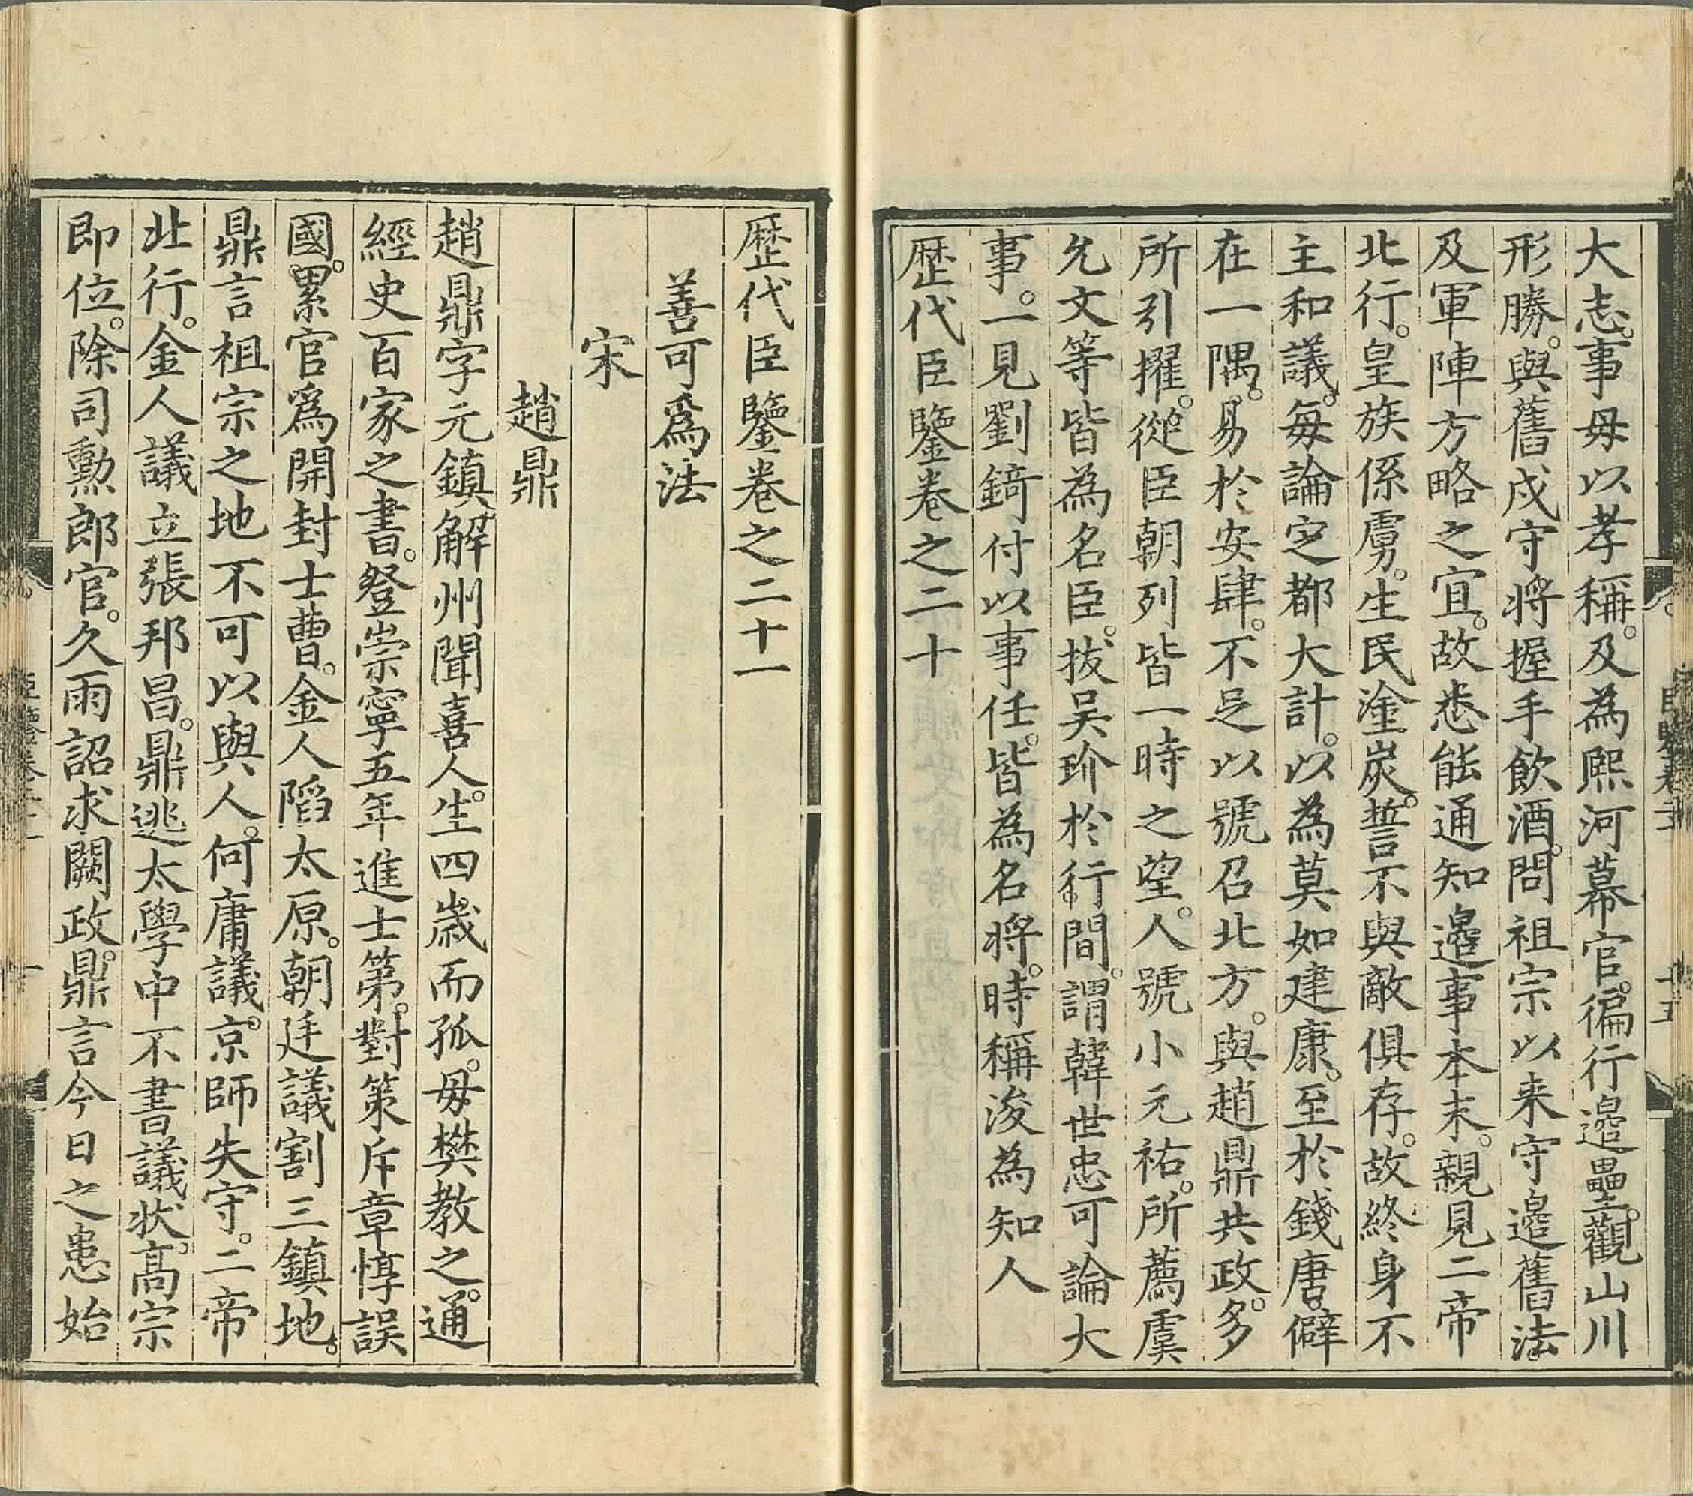 大志。事母以孝稱。及為熙河幕官。徧行邊壘。觀山川
形勝。與舊戍守將握手飲酒。問祖宗以来守邊舊法。
及軍陣方略之宜。故悉能通知邊事本末。親見二帝
北行。皇族係虜。生民塗炭。誓不與敵俱存。故終身不
主和議。每論定都大計。以為莫如建康。至於錢唐。僻
在一隅。易於安肆。不足以號召北方。與趙鼎共政。多
所引擢。從臣朝列皆一時之望。人號小元祐。所薦虞
允文等皆為名臣。拔吳玠於行間。謂韓世忠可論大
事。一見劉錡付以事任。皆為名將。時稱浚為知人
歷代臣鑒卷之二十
歷代臣鑒卷之二十一
善可爲法
宋
趙鼎
趙鼎字元鎮解州聞喜人。生四歲而孤。母樊教之。通
經史百家之書。登崇寧五年進士第。對策斥章惇誤
國。累官爲開封士曹。金人陷太原。朝廷議割三鎮地。
鼎言祖宗之地不可以與人。何庸議。京師失守。二帝
北行。金人議立張邦昌。鼎逃太學中不書議狀。高宗
即位。除司勲郎官。久雨詔求闕政。鼎言今日之患始